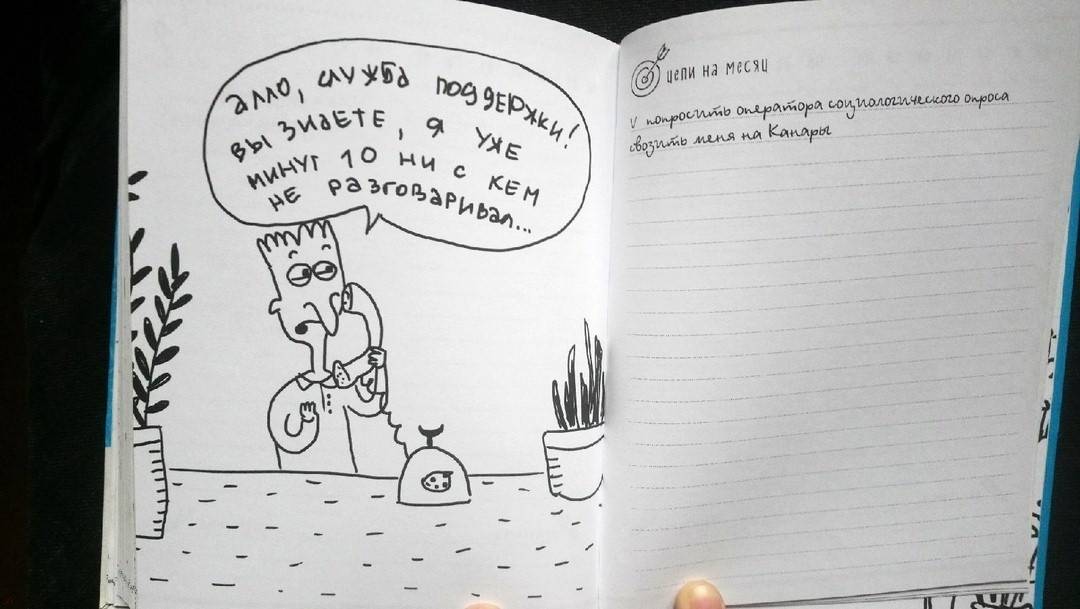 АЛЛО, СЛУЖБА ПОДДЕРЖКИ!
ВЫ ЗНАЕТЕ, Я УЖЕ
МИНУТ 10 НИ С КЕМ
НЕ РАЗГОВАРИВАЛ...
ЦЕЛИ НА МЕСЯЦ
v попросить оператора социологического опроса
свозить меня на Канары